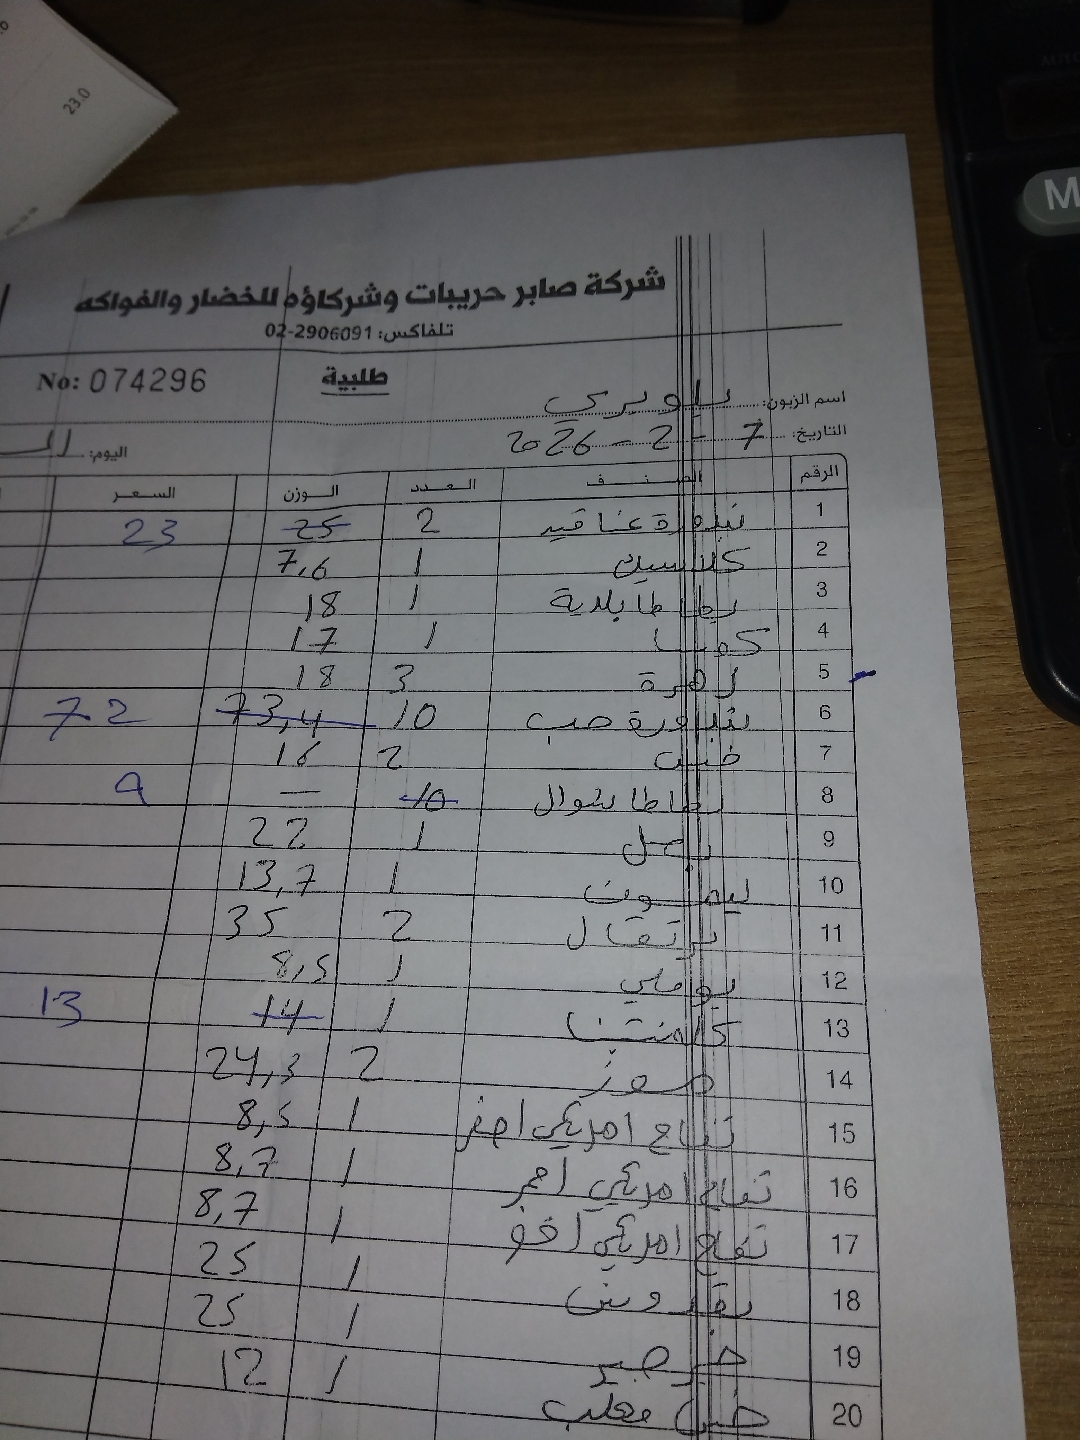 23.0
M
شركة صابر حريبات وشركاؤه للخضار والفواكه
تلفاكس: 02-2906091
No: 074296
طلبية
اسم الزبون:
التاريخ: 7 - 2 - 2026
اليوم:
الرقم الصنف العدد الوزن السعر
1 بندورة عناقيد 2 25 23
2 كلاسيك 1 7,6
3 بطاطا بلدية 1 18
4 كوسا 1 17
5 زهرة 3 18
6 بندورة حب 10 73,4 72
7 خس 2 16
8 بطاطا شوال 10 — 9
9 بصل 1 22
10 ليمون 1 13,7
11 برتقال 2 35
12 بوملي 1 8,5
13 كلمنتينا 1 14 13
14 موز 2 24,3
15 تفاح امريكي اصفر 1 8,5
16 تفاح امريكي احمر 1 8,7
17 تفاح امريكي 1 8,7
18 بقدونس 1 25
19 1 25
20 1 12